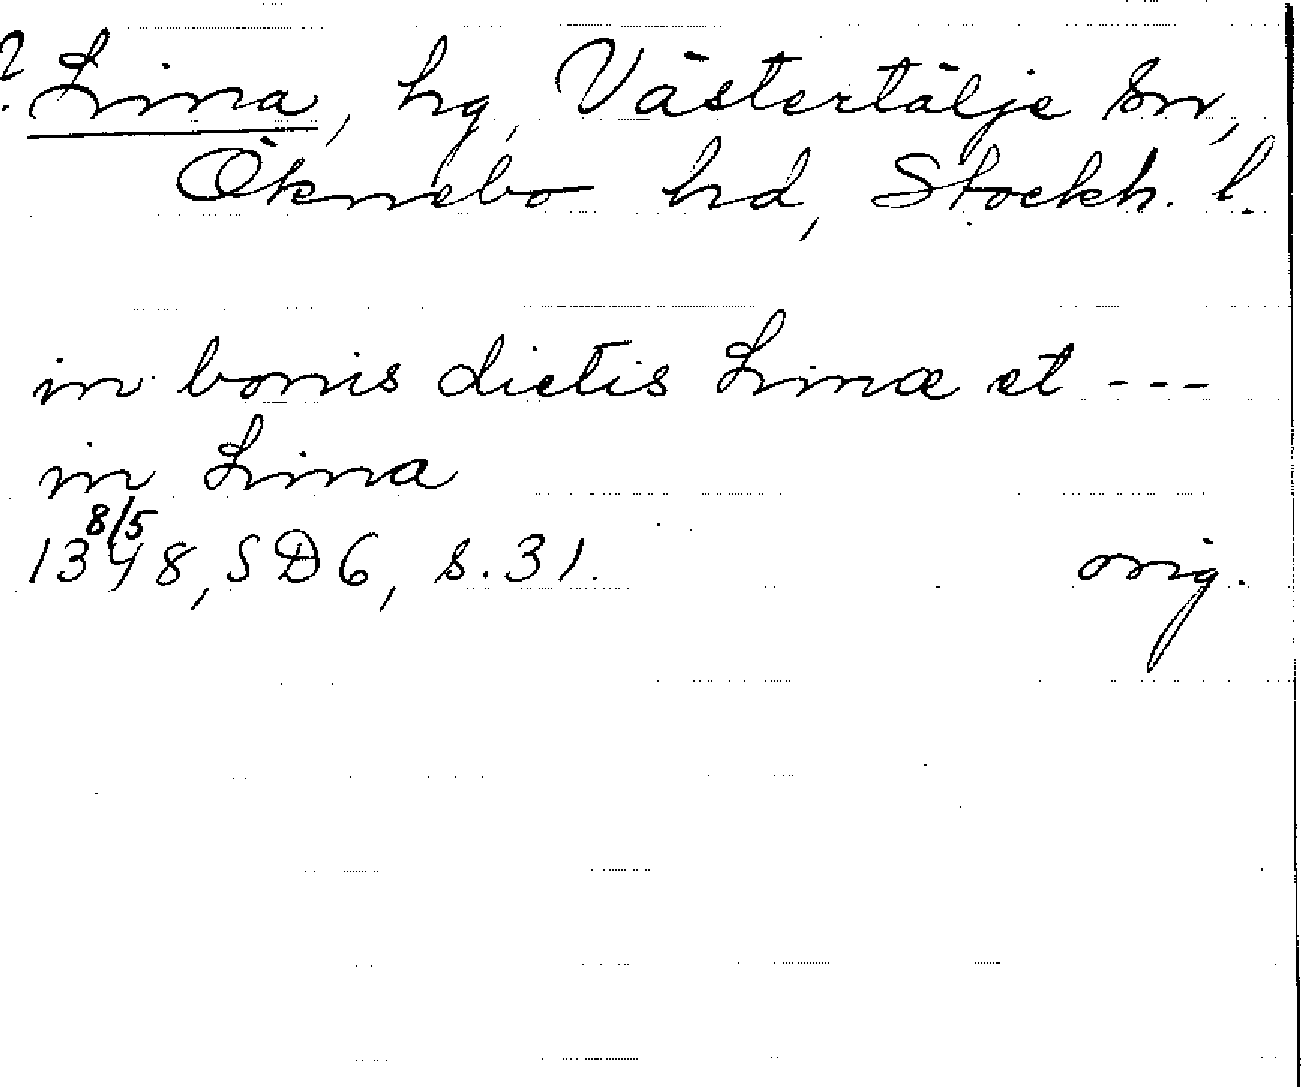 ? Lina, hg, Västertälje sn,
Öknebo hd, Stockh. l.
in bonis dictis Linæ et ---
in Lina
8/5
1348, SD6, s. 31. orig.